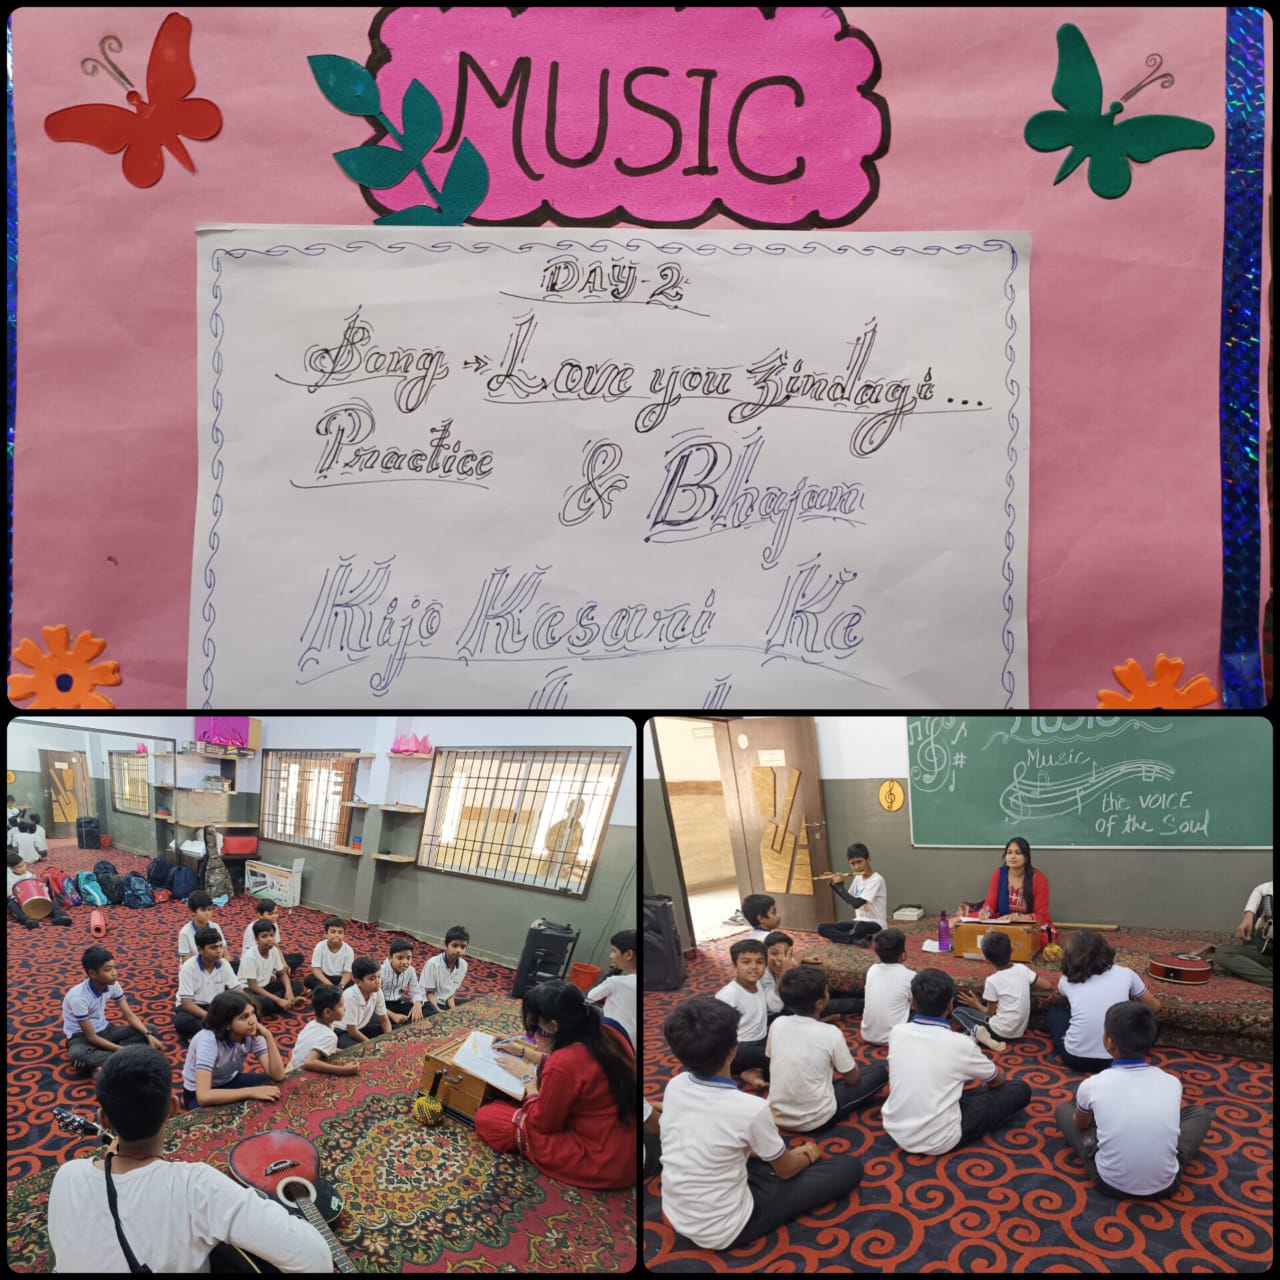 MUSIC
DAY-2
Song → Love you Zindagi...
Practice
& Bhajan
Kijo Kesari Ke
MUSIC
Music
the VOICE
of the Soul